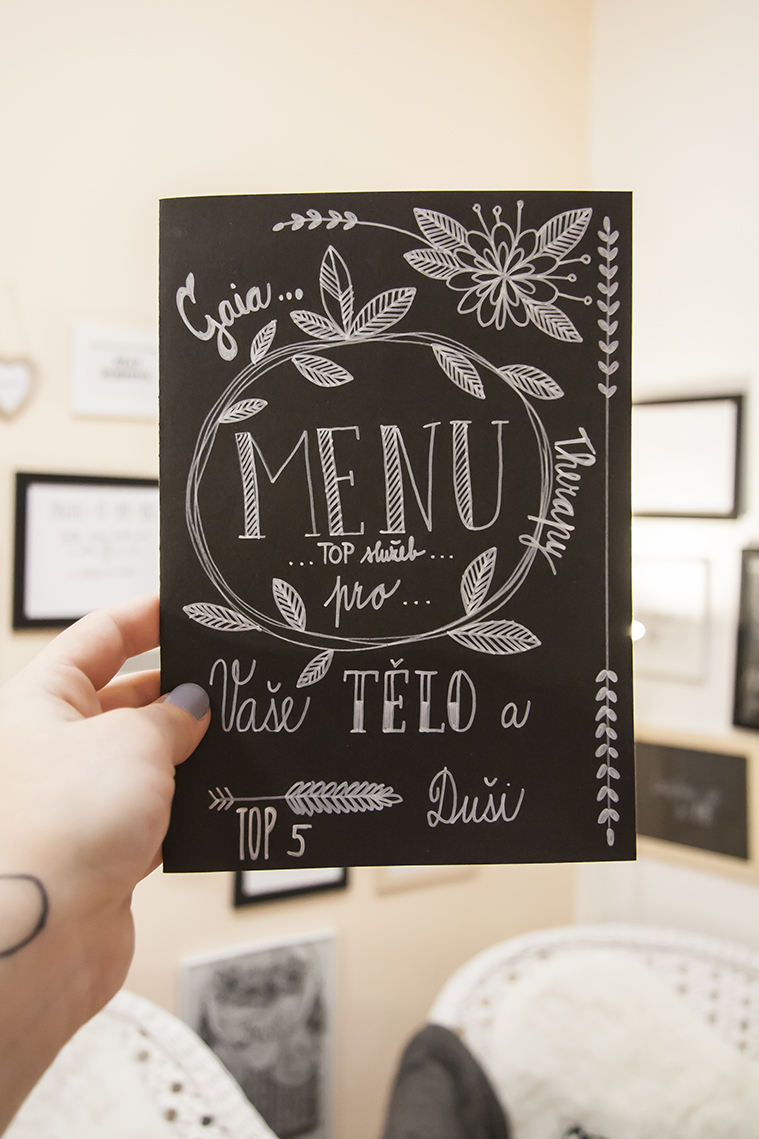 Gaia...
MENU
Therapy
...TOP služeb...
pro...
Vaše TĚLO a
Duši
TOP 5